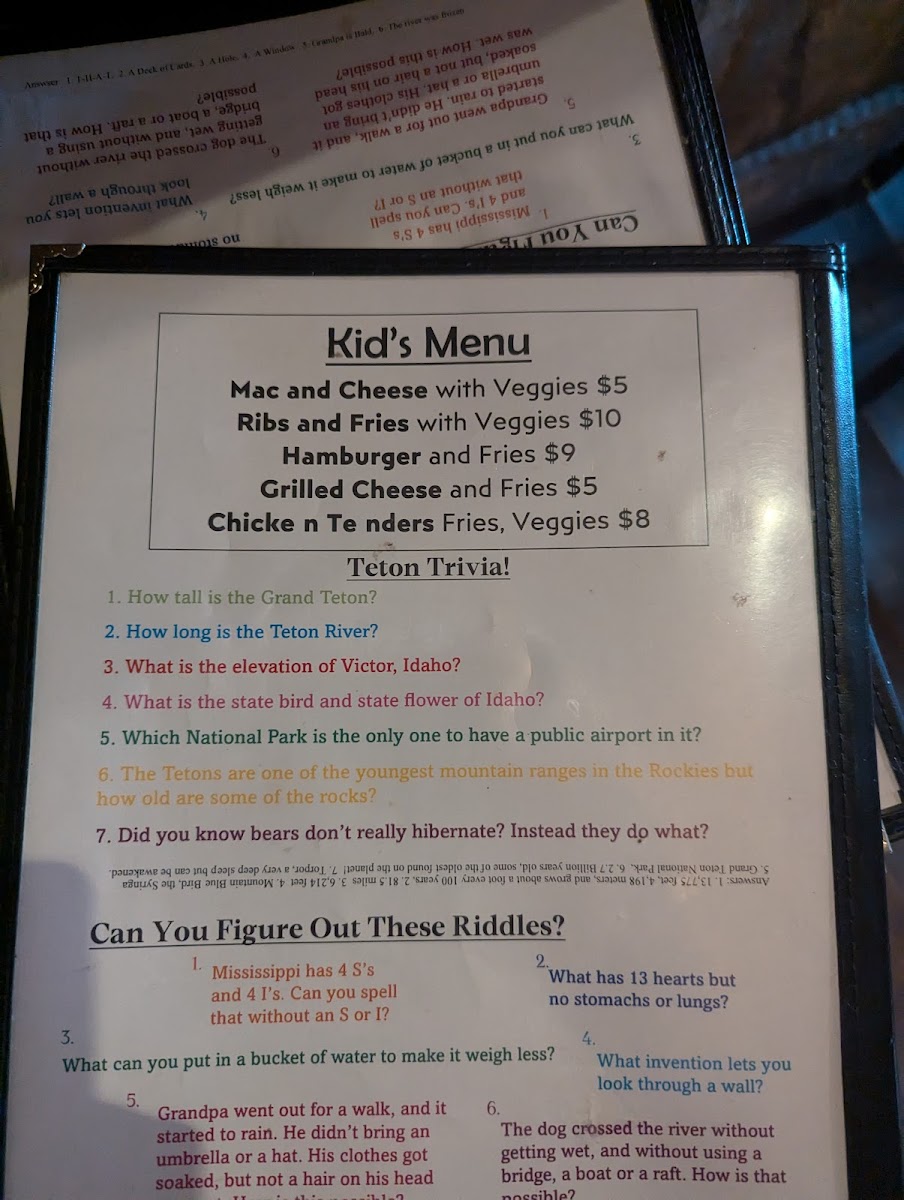 Kid's Menu
Mac and Cheese with Veggies $5
Ribs and Fries with Veggies $10
Hamburger and Fries $9
Grilled Cheese and Fries $5
Chicke n Te nders Fries, Veggies $8
Teton Trivia!
1. How tall is the Grand Teton?
2. How long is the Teton River?
3. What is the elevation of Victor, Idaho?
4. What is the state bird and state flower of Idaho?
5. Which National Park is the only one to have a public airport in it?
6. The Tetons are one of the youngest mountain ranges in the Rockies but
how old are some of the rocks?
7. Did you know bears don't really hibernate? Instead they do what?
Answers: 1. 13,775 feet, 4,198 meters, and grows about a foot every 100 years, 2. 81.5 miles 3. 6,214 feet 4. Mountain Blue Bird, the Syringa
5. Grand Teton National Park, 6. 2.7 Billion years old, some of the oldest found on the planet! 7. Torpor, a very deep sleep but can be awakened.
Can You Figure Out These Riddles?
1. Mississippi has 4 S's
and 4 I's. Can you spell
that without an S or I?
2. What has 13 hearts but
no stomachs or lungs?
3.
What can you put in a bucket of water to make it weigh less?
4. What invention lets you
look through a wall?
5. Grandpa went out for a walk, and it
started to rain. He didn't bring an
umbrella or a hat. His clothes got
soaked, but not a hair on his head
6.
The dog crossed the river without
getting wet, and without using a
bridge, a boat or a raft. How is that
possible?
Can You Figu
1. Mississippi has 4 S's
and 4 I's. Can you spell
that without an S or I?
no stom
3.
What can you put in a bucket of water to make it weigh less?
4. What invention lets you
look through a wall?
5. Grandpa went out for a walk, and it
started to rain. He didn't bring an
umbrella or a hat. His clothes got
soaked, but not a hair on his head
was wet. How is this possible?
6. The dog crossed the river without
getting wet, and without using a
bridge, a boat or a raft. How is that
possible?
Answer 1. T-H-A-T, 2. A Deck of Cards, 3. A Hole, 4. A Window 5. Grandpa is Bald, 6. The river was frozen